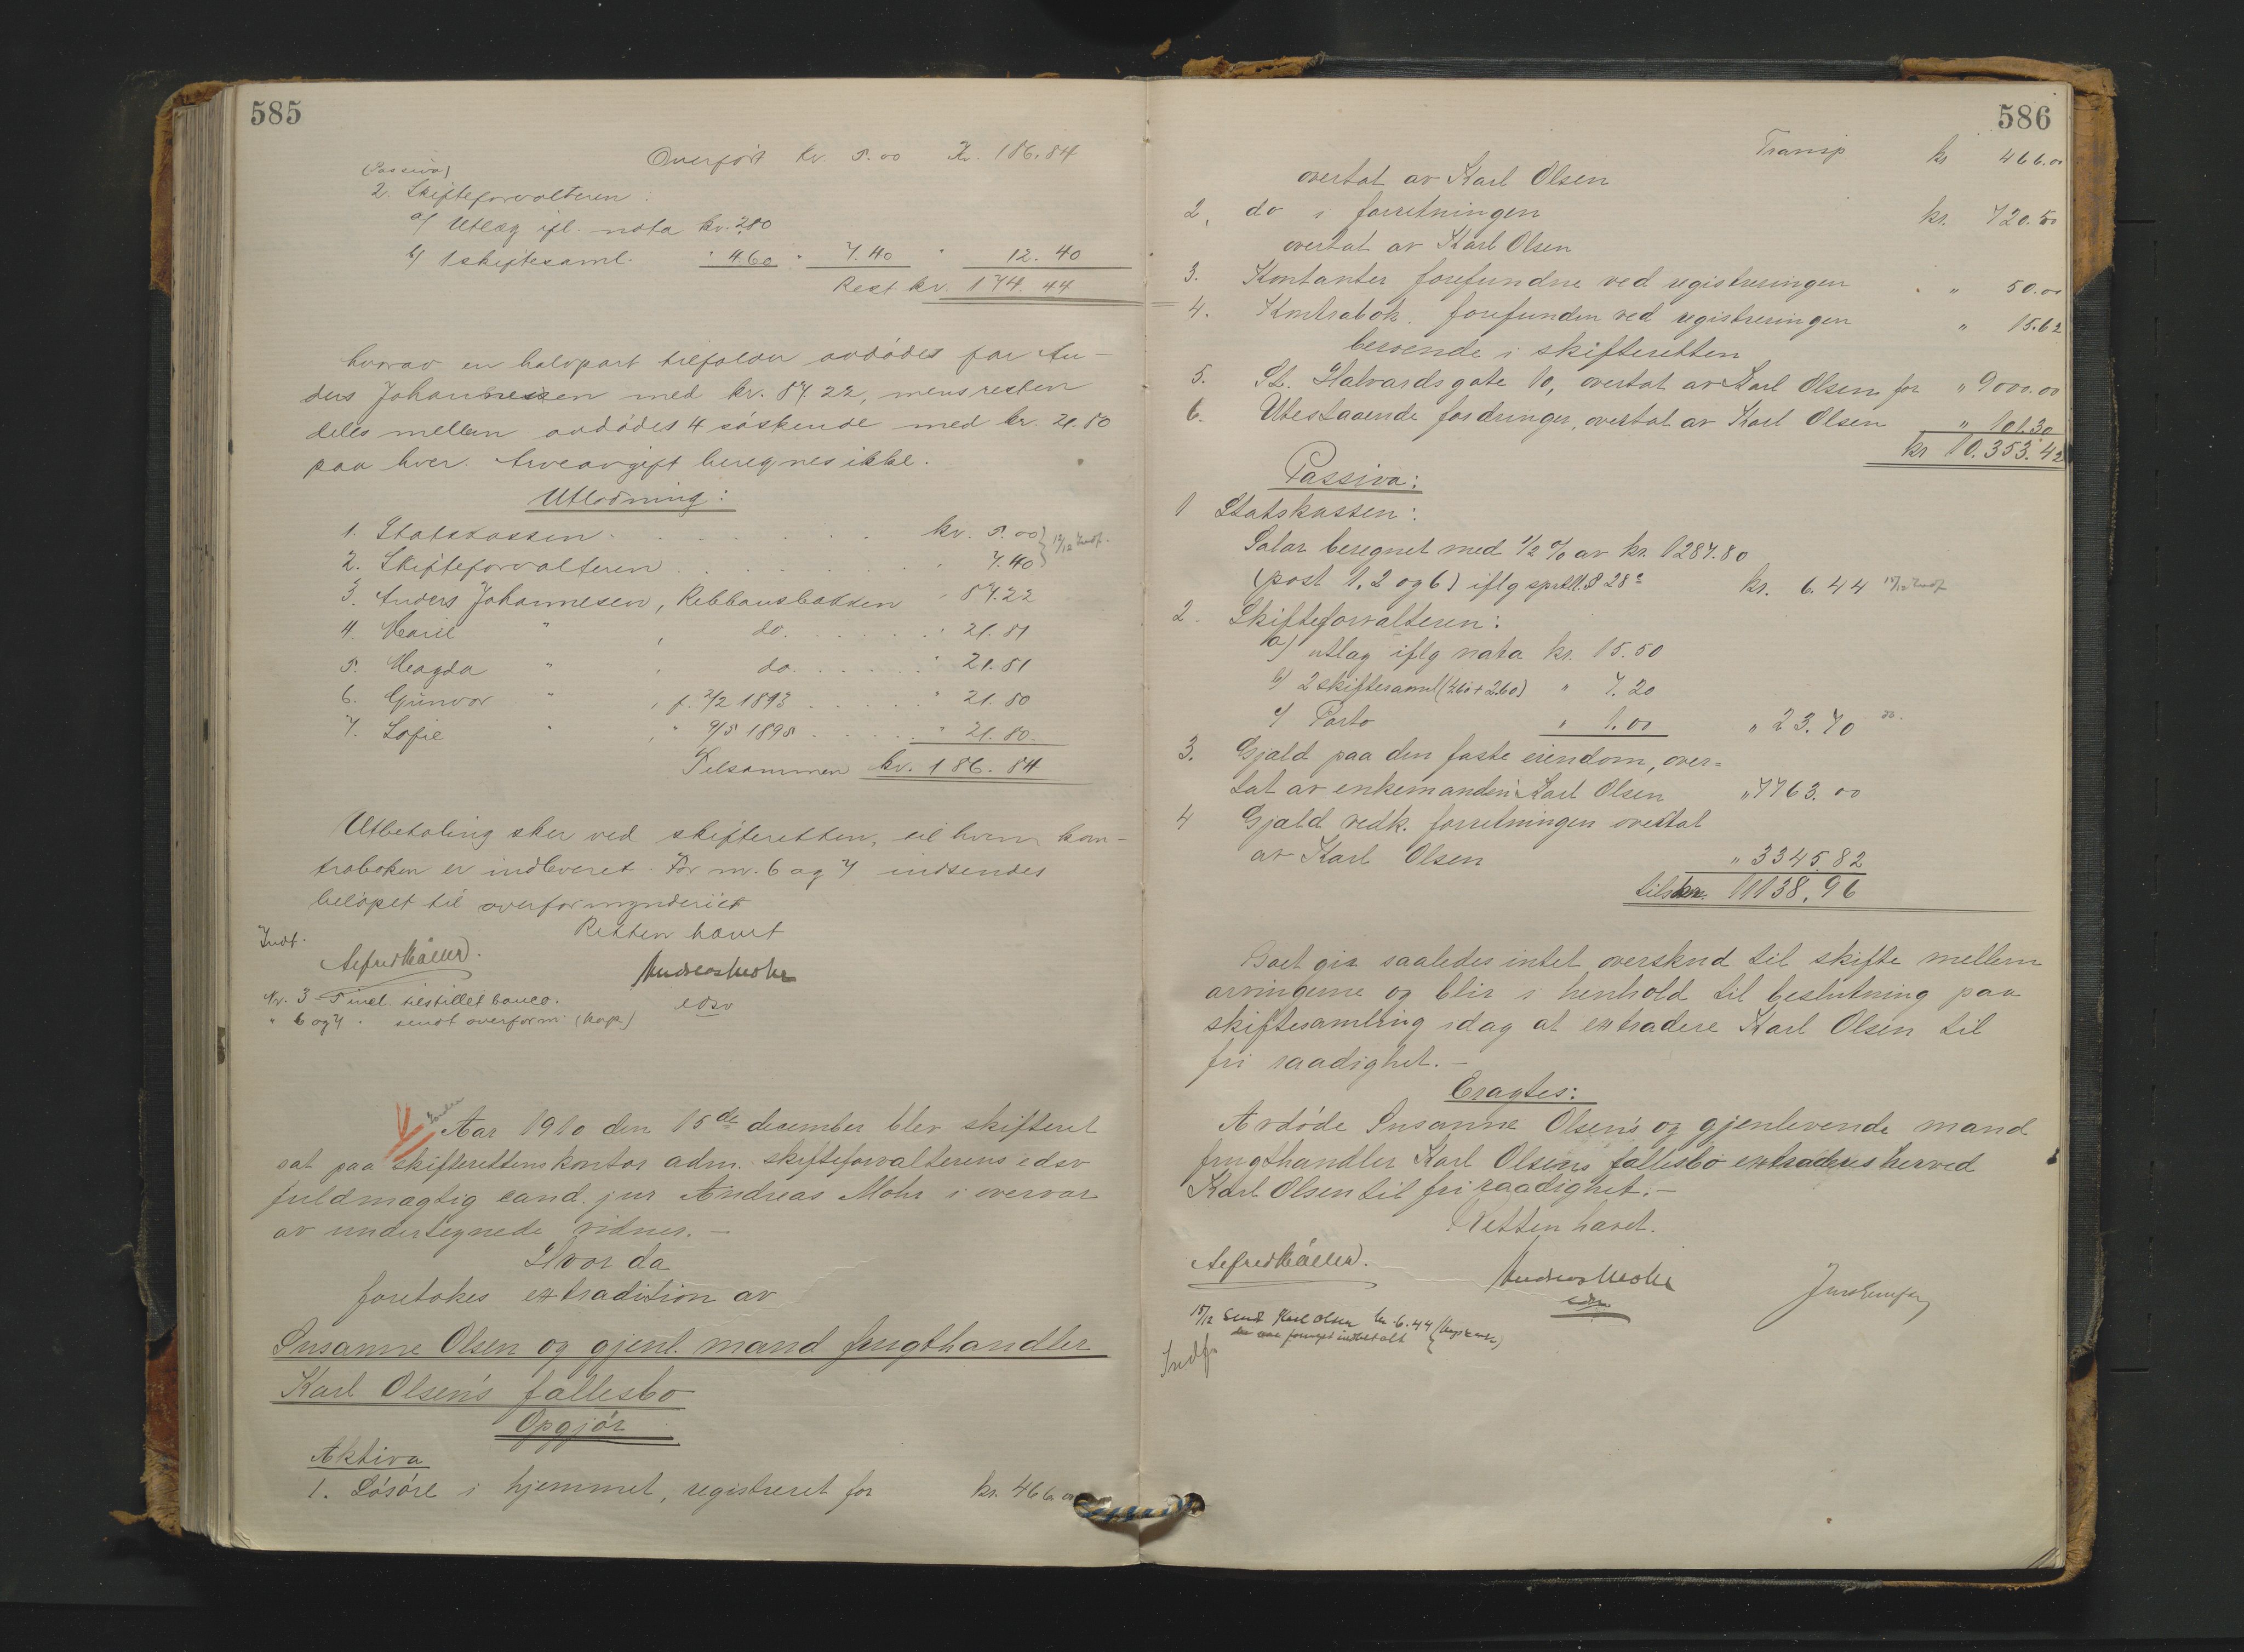 585
Overført kr. 5.00 Kr. 186.84
(Passiva)
2. Skifteforvalteren:
a/ Utlæg ifl. nota kr. 2.80
b/ 1 skiftesaml. " 4.60 " 7.40 " 12.40
Rest kr. 174.44
hvorav en halvpart tilfalder avdødes far An-
ders Johannessen med kr. 87.22, mens resten
deles mellem avdødes 4 søskende med kr. 21.80
paa hver. Arveavgift beregnes ikke.
Utlodning:
1. Statskassen . . . . . . . kr. 5.00 } 12/12 Indf.
2. Skifteforvalteren . . . . . . . " 7.40
3. Anders Johannesen, Rebbansbakken " 87.22
4. Marie " , do. . . . . . " 21.81
5. Magda " , do. . . . . . " 21.81
6. Gunvor " , f. 2/2 1893 . . . . . " 21.80
7. Sofie " , " 9/5 1895 . . . . . " 21.80.
Tilsammen kr. 186.84
Utbetaling sker ved skifteretten, til hvem kon-
traboken er indleveret. For nr. 6 og 7 indsendes
beløpet til overformynderiet
Retten hævet
Indf.
Alfred Møller. Andreas Mohr
edsv
Nr. 3-5 incl. tilstillet banco.
" 6 og 7 " sendt overform. (Kap.)
Aar 1910 den 15de december blev skifteret
sat paa skifterettens kontor adm. skifteforvalterens edsv
fuldmægtig cand. jur Andreas Mohr i overvær
av undertegnede vidner. —
Hvor da
foretokes extradition av
Susanne Olsen og gjenl. mand frugthandler
Karl Olsen's fællesbo
Opgjör
Aktiva
1. Løsøre i hjemmet, registreret for kr. 466.00
586
Transp kr 466.00
overtat av Karl Olsen
2. do i forretningen kr. 720.50
overtat av Karl Olsen
3. Kontanter forefundne ved registreringen " 50.00
4. Kontrabok forefunden ved registreringen " 15.62
beroende i skifteretten
5. St. Halvards gate 10, overtat av Karl Olsen for " 9000.00
6. Utestaaende fordringer, overtat av Karl Olsen " 101.30
kr 10.353.42
Passiva:
1 Statskassen:
Salær beregnet med 1/2 % av kr. 1287.80
(post 1, 2 og 6) iflg sprtll. § 28 kr. 6.44 15/12 Indf
2. Skifteforvalteren:
a) utlæg iflg nota kr. 15.50
b) 2 skiftesaml (4.60 + 2.60) " 7.20
c/ Porto " 1.00 " 23.70 do.
3. Gjæld paa den faste eiendom, over=
tat av enkemanden Karl Olsen " 7763.00
4 Gjæld vedk. forretningen overtat
av Karl Olsen " 3345.82
tils. kr. 11138.96
Boet gir saaledes intet overskud til skifte mellem
arvingerne og blir i henhold til beslutning paa
skiftesamling idag at extradere Karl Olsen til
fri raadighet. —
Eragtes:
Avdøde Susanne Olsen's og gjenlevende mand
frugthandler Karl Olsens fællesbo extraderes herved
Karl Olsen til fri raadighet. —
Retten hævet.
Alfred Møller. Andreas Mohr
edsv
15/12 Sendt Karl Olsen kr 6.44
Indf.